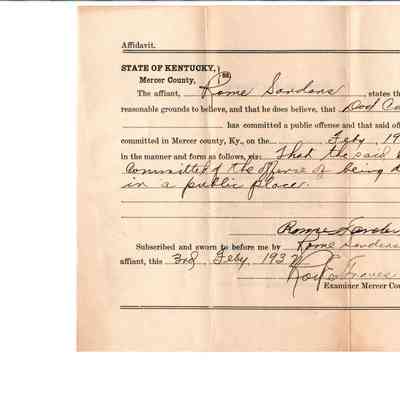 Affidavit.
STATE OF KENTUCKY,
Mercer County,
The affiant, Rome Sanders, states th
reasonable grounds to believe, and that he does believe, that
has committed a public offense and that said of
committed in Mercer county, Ky., on the Feby 19
in the manner and form as follows, viz: That the said
Committed the offense of being d
in a public place.
Rome Sanders
Subscribed and sworn to before me by Rome Sanders
affiant, this 3rd Feby. 1937
Graves
Examiner Mercer Cou